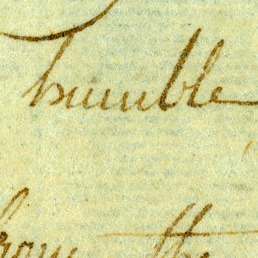 humble
from the